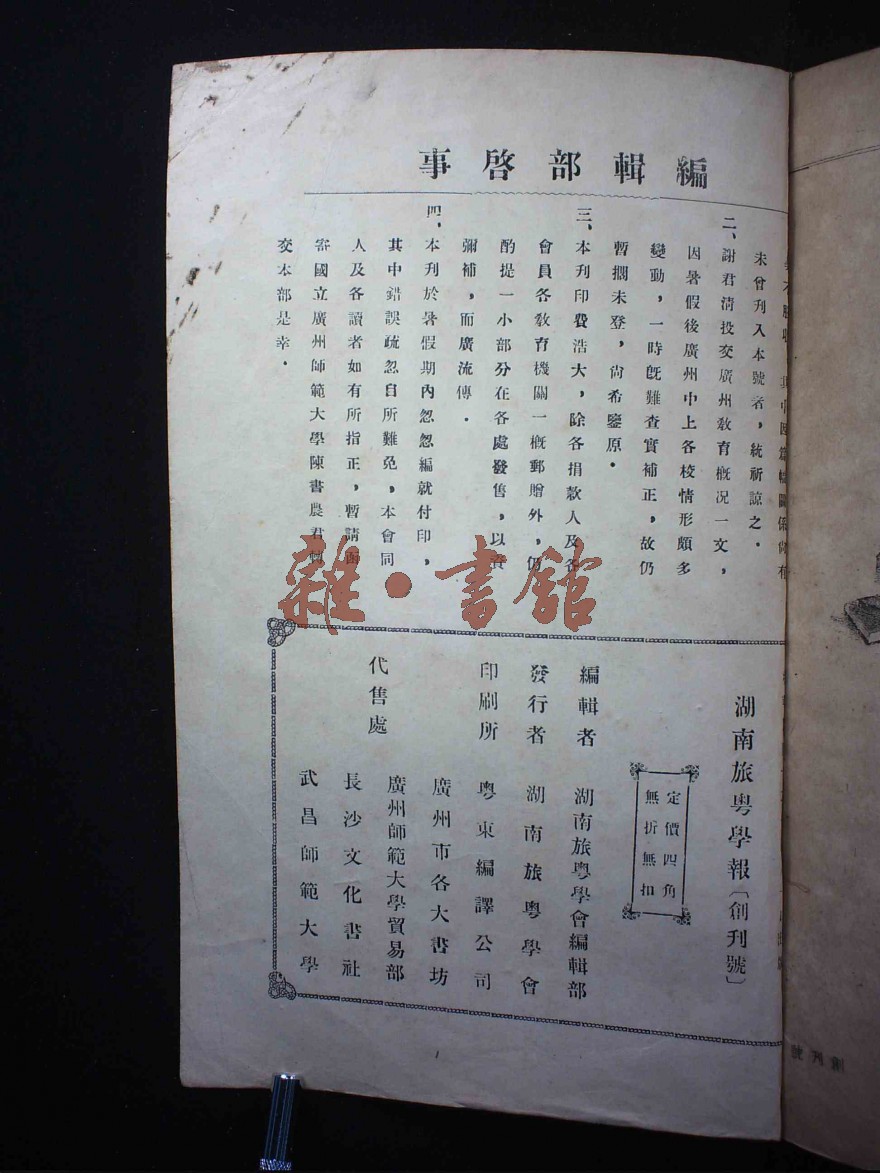 編輯部啓事
未曾刋入本號者，統祈諒之．
二、謝君淸投交廣州敎育槪况一文，
因暑假後廣州中上各校情形頗多
變動，一時旣難查實補正，故仍
暫擱未登，尙希鑒原．
三、本刋印費浩大，除各捐款人及各
會員各敎育機關一槪郵贈外，仍
酌提一小部分在各處發售，以資
彌補，而廣流傳．
四、本刋於暑假期內忽忽編就付印，
其中錯誤疏忽自所難免，本會同
人及各讀者如有所指正，暫請函
寄國立廣州師範大學陳書農君轉
交本部是幸．
雜·書館
湖南旅粤學報〔創刋號〕
定價四角
無折無扣
編輯者　湖南旅粤學會編輯部
發行者　湖南旅粤學會
印刷所　粤東編譯公司
代售處
廣州市各大書坊
廣州師範大學貿易部
長沙文化書社
武昌師範大學
創刋號